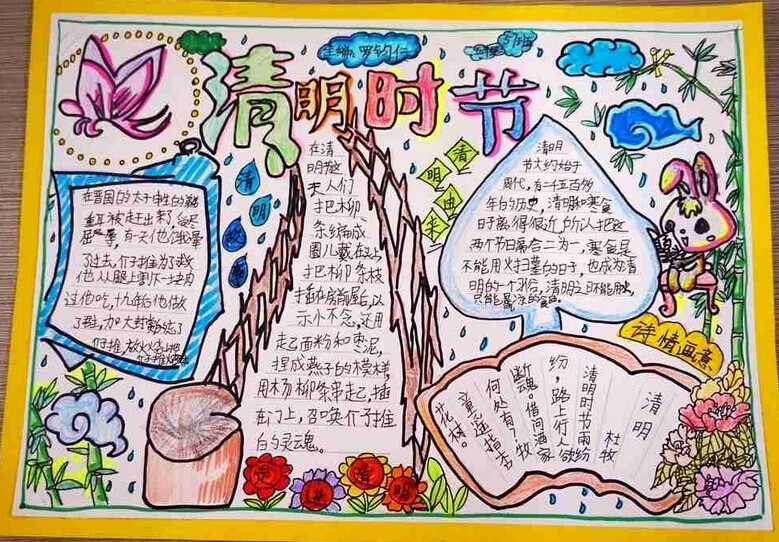 清明时节
主编：罗钧仁
清明
由来
清明故事
在晋国的太子申生的弟
重耳被赶出来了，受尽
屈辱，有一天他们饿晕
了过去，介子推为了救
他从腿上割下一块肉
过他吃，十九年后他做
了君，加大封
介推，放火
在清
明节这
天人们
把柳
条编成
圈儿戴在头上
把柳条枝
插在房前屋后，以
示小不念，还用
走己面粉和枣泥，
捏成燕子的模样，
用杨柳条串走己，插
在门上，召唤介子推
的灵魂。
清明
节大约始于
周代，有二千五百多
年的历史，清明和寒食
日子离得很近，所以把这
两个节日篥合二为一，寒食是
不能用火扫墓的日子，也成为清
明的一个习俗，清明之日不能用火，
只能
诗情画意
清明
杜牧
清明时节雨纷
纷，路上行人欲
断魂。借问酒家
何处有？牧
童遥指杏
花村。
走进清明